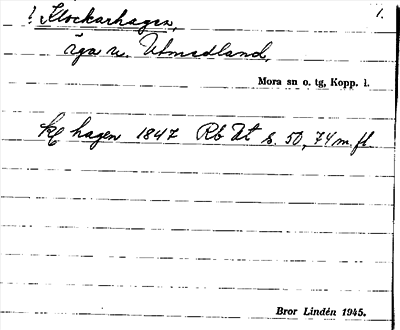 ! Klockarhagen, 1.
äga u. Utmedland.
Mora sn o. tg, Kopp. l.
hagen 1847 Rb Ut s. 50, 74 m. fl.
Bror Lindén 1945.